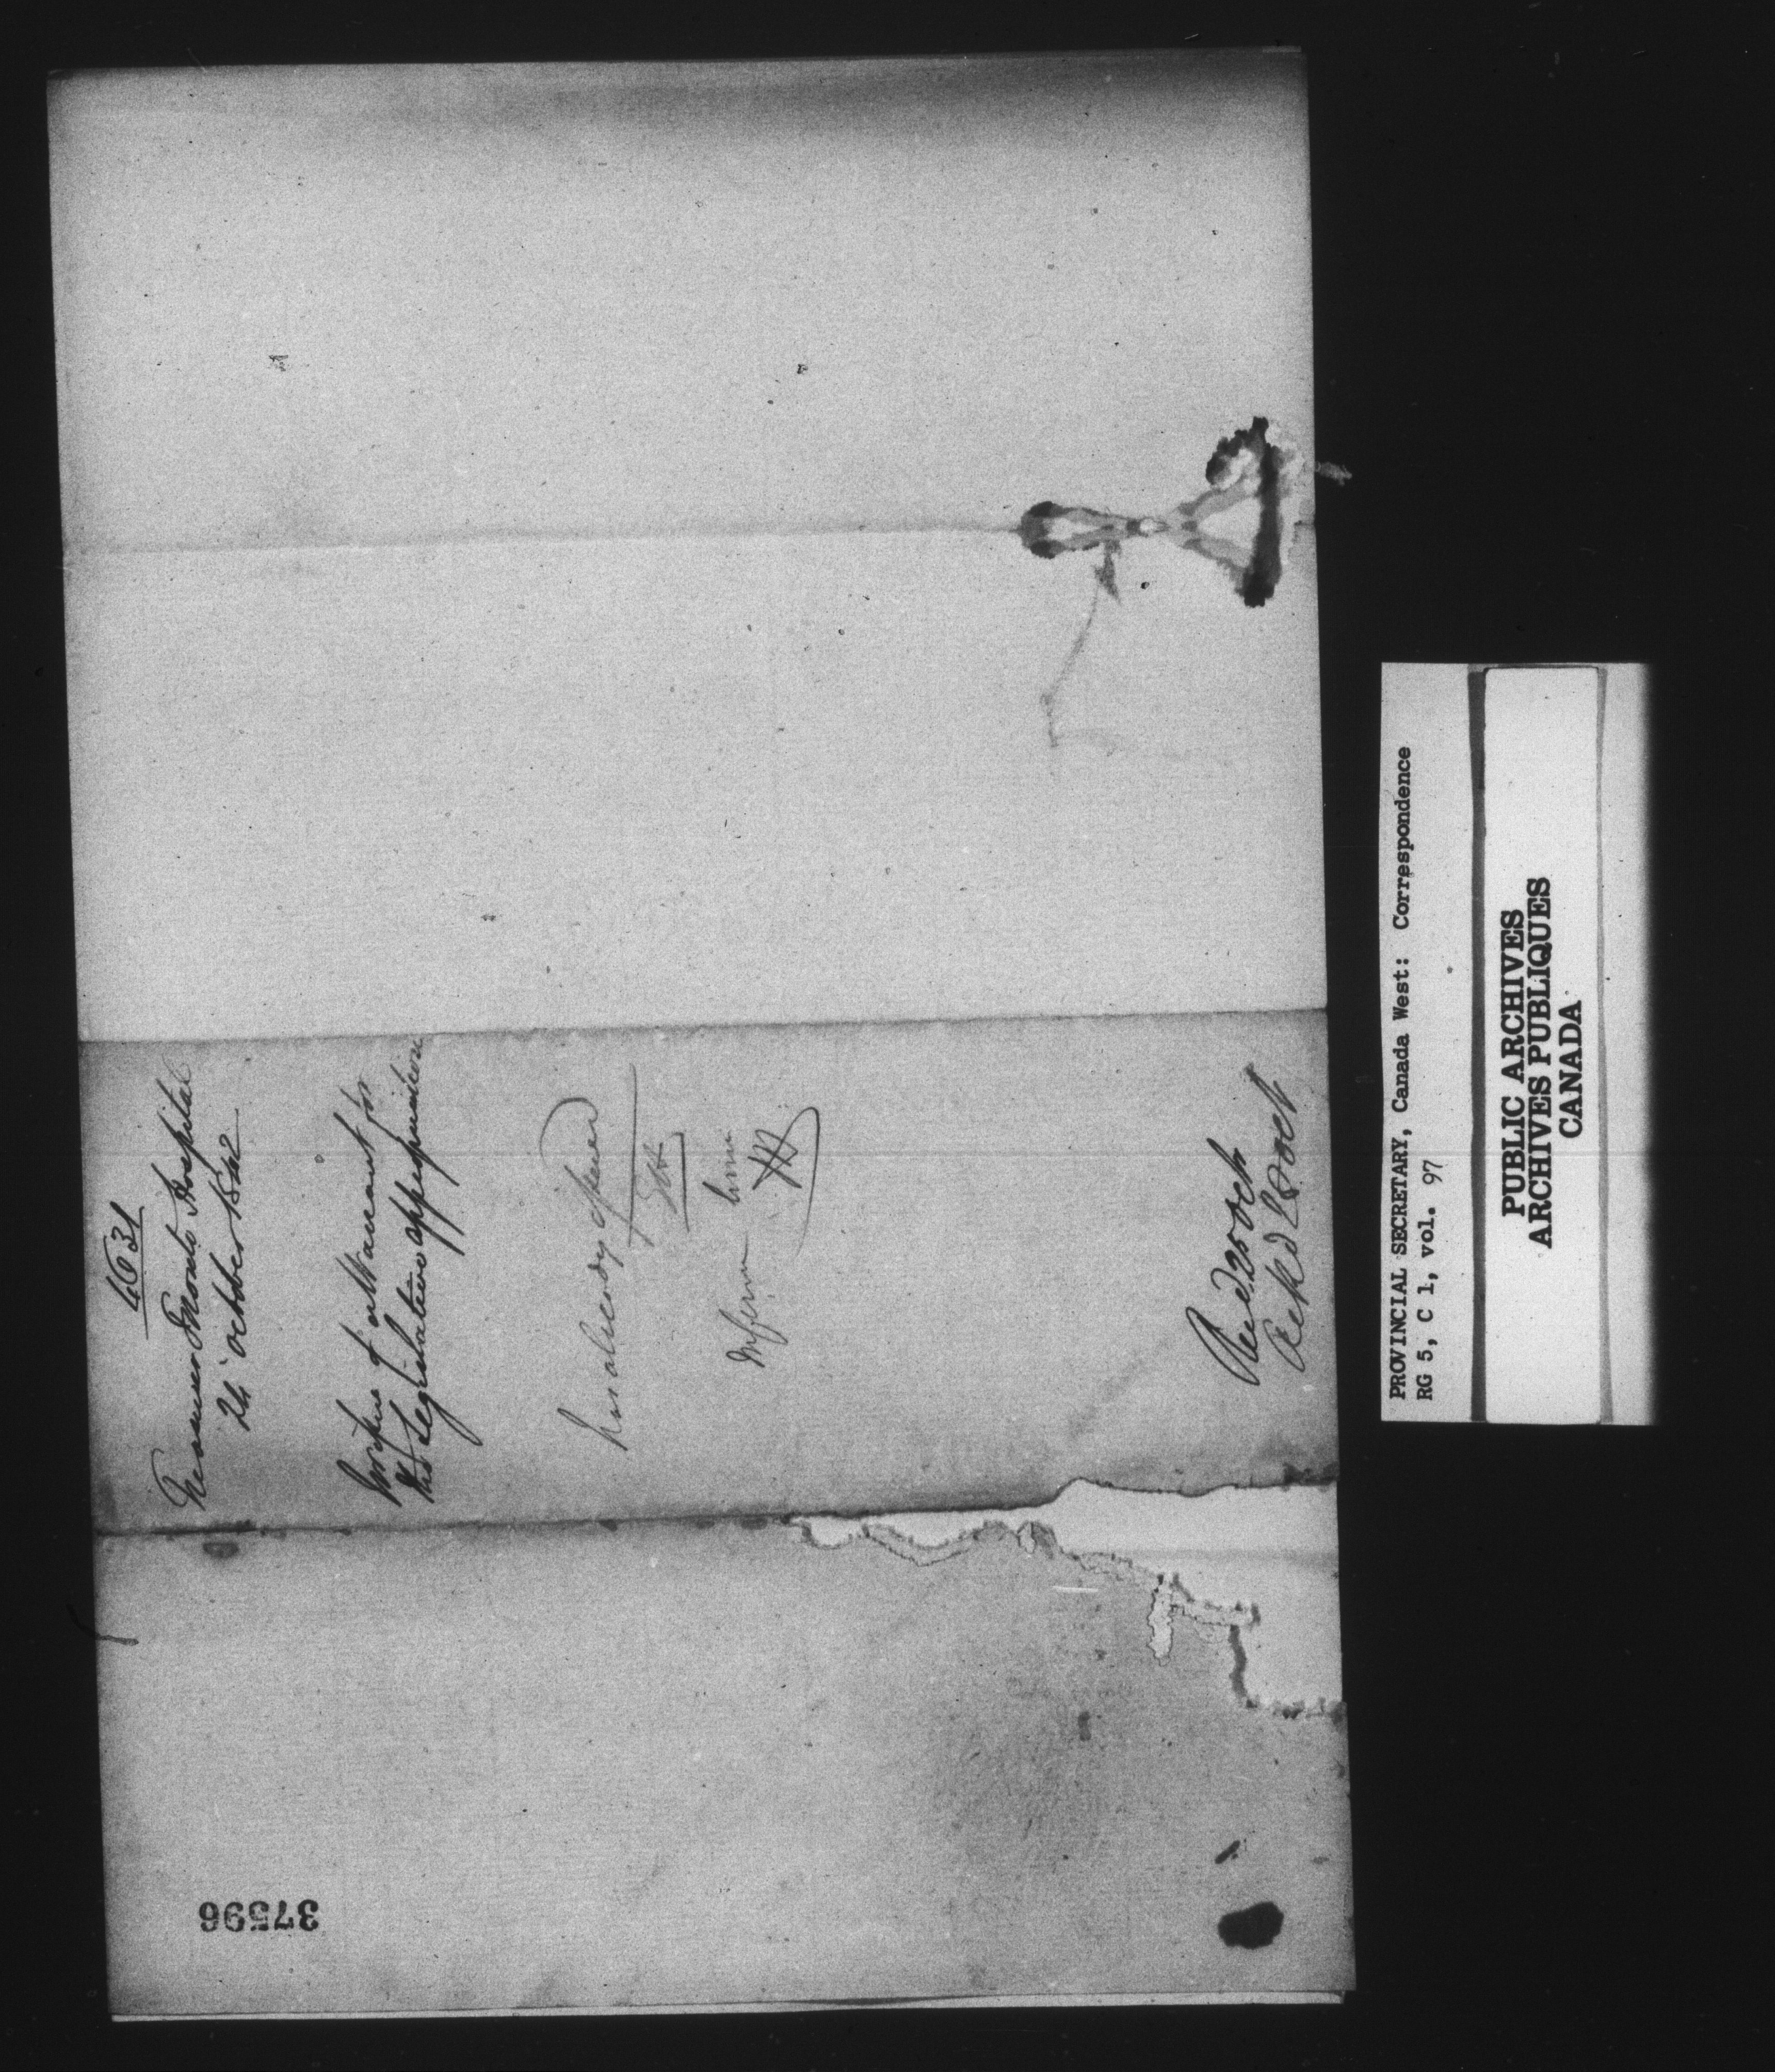 4631
Treasurer Toronto Hospital
24 October 1842
for issue of a Warrant for
the Legislative appropriation
has already issued
SBH
Inform him
SBH
Recd 25 Oct
Ackd 28 Oct
37596
PROVINCIAL SECRETARY, Canada West: Correspondence
RG 5, C 1, vol. 97
PUBLIC ARCHIVES
ARCHIVES PUBLIQUES
CANADA